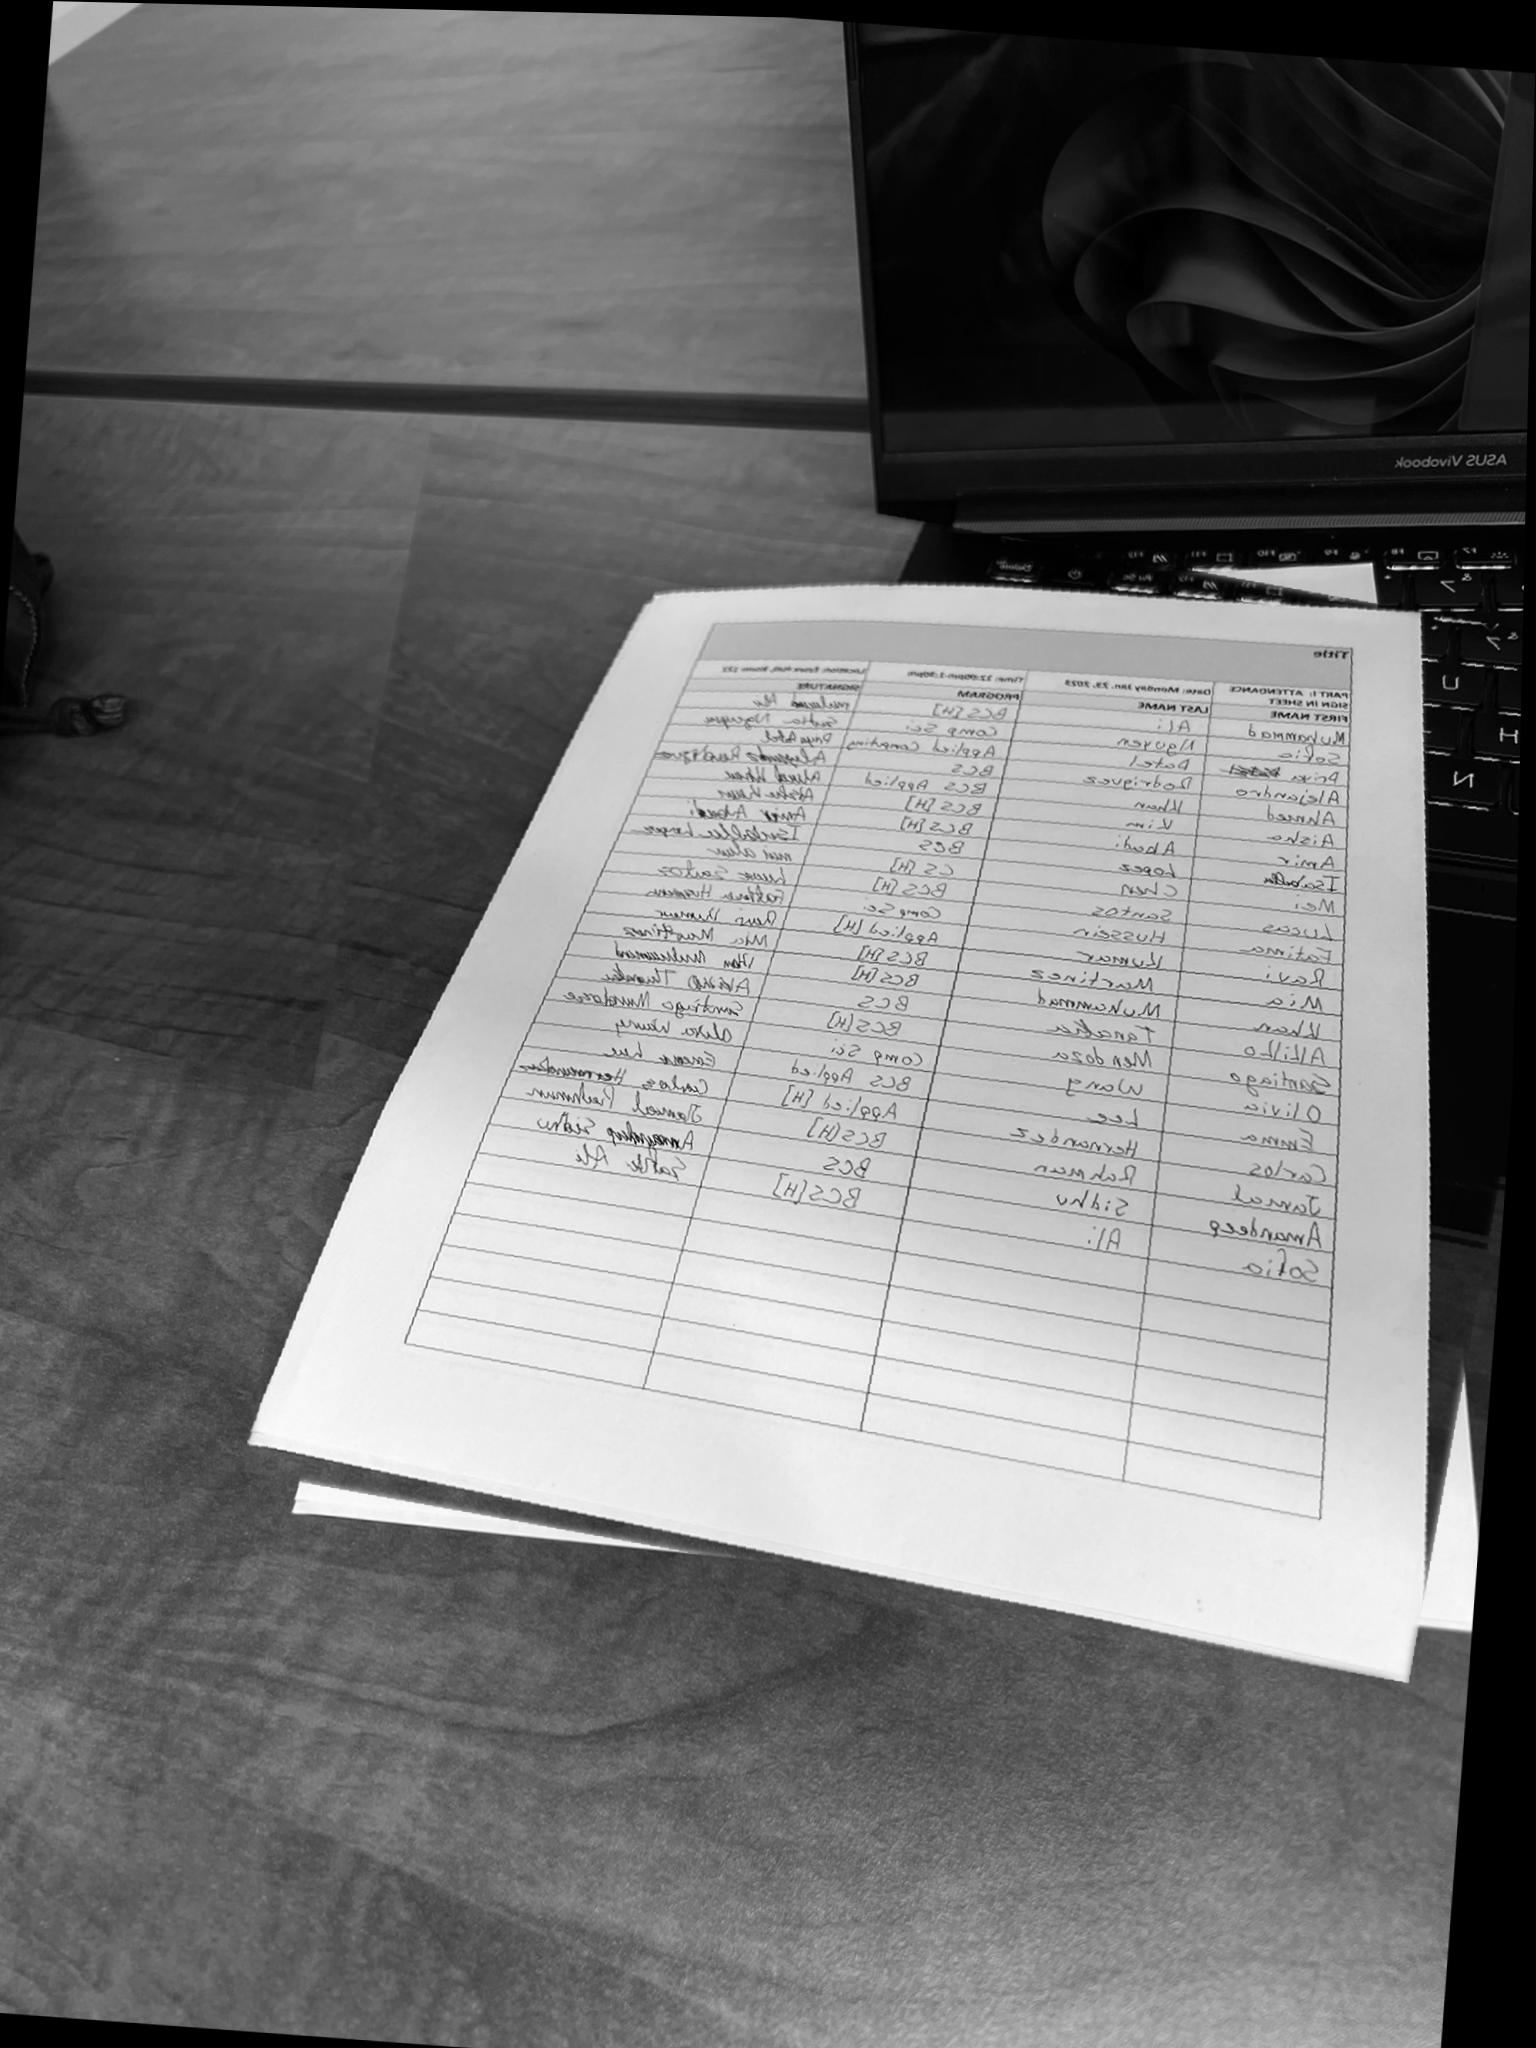 ASUS Vivobook
Title
PART I: ATTENDANCE SIGN IN SHEET Date: Monday Jan. 23, 2023 Time: 12:00pm-1:30pm
FIRST NAME LAST NAME PROGRAM SIGNATURE
Muhammad Ali BCS [H]
Sofia Nguyen Comp Sci Sofia Nguyen
Priya Patel Applied Computing Priya Patel
Alejandro Rodriguez BCS Alejandro Rodriguez
Ahmed Khan BCS Applied Ahmed Khan
Aisha Kim BCS [H]
Amir Abadi BCS [H] Amir Abadi
Isabella Lopez BCS Isabella Lopez
Mei Chen CS [H]
Lucas Santos BCS [H] Lucas Santos
Fatima Hussein Comp Sci Fatima Hussein
Ravi Kumar Applied [H] Ravi Kumar
Mia Martinez BCS [H] Mia Martinez
Khan Muhammad BCS [H] Khan Muhammad
Tanaka BCS
Santiago Mendoza BCS [H] Santiago Mendoza
Olivia Wang Comp Sci
Emma Lee BCS Applied Emma Lee
Carlos Hernandez Applied [H] Carlos Hernandez
Jamal Rahman BCS [H] Jamal Rahman
Amandeep Sidhu BCS Amandeep Sidhu
Sofia Ali BCS [H] Ali